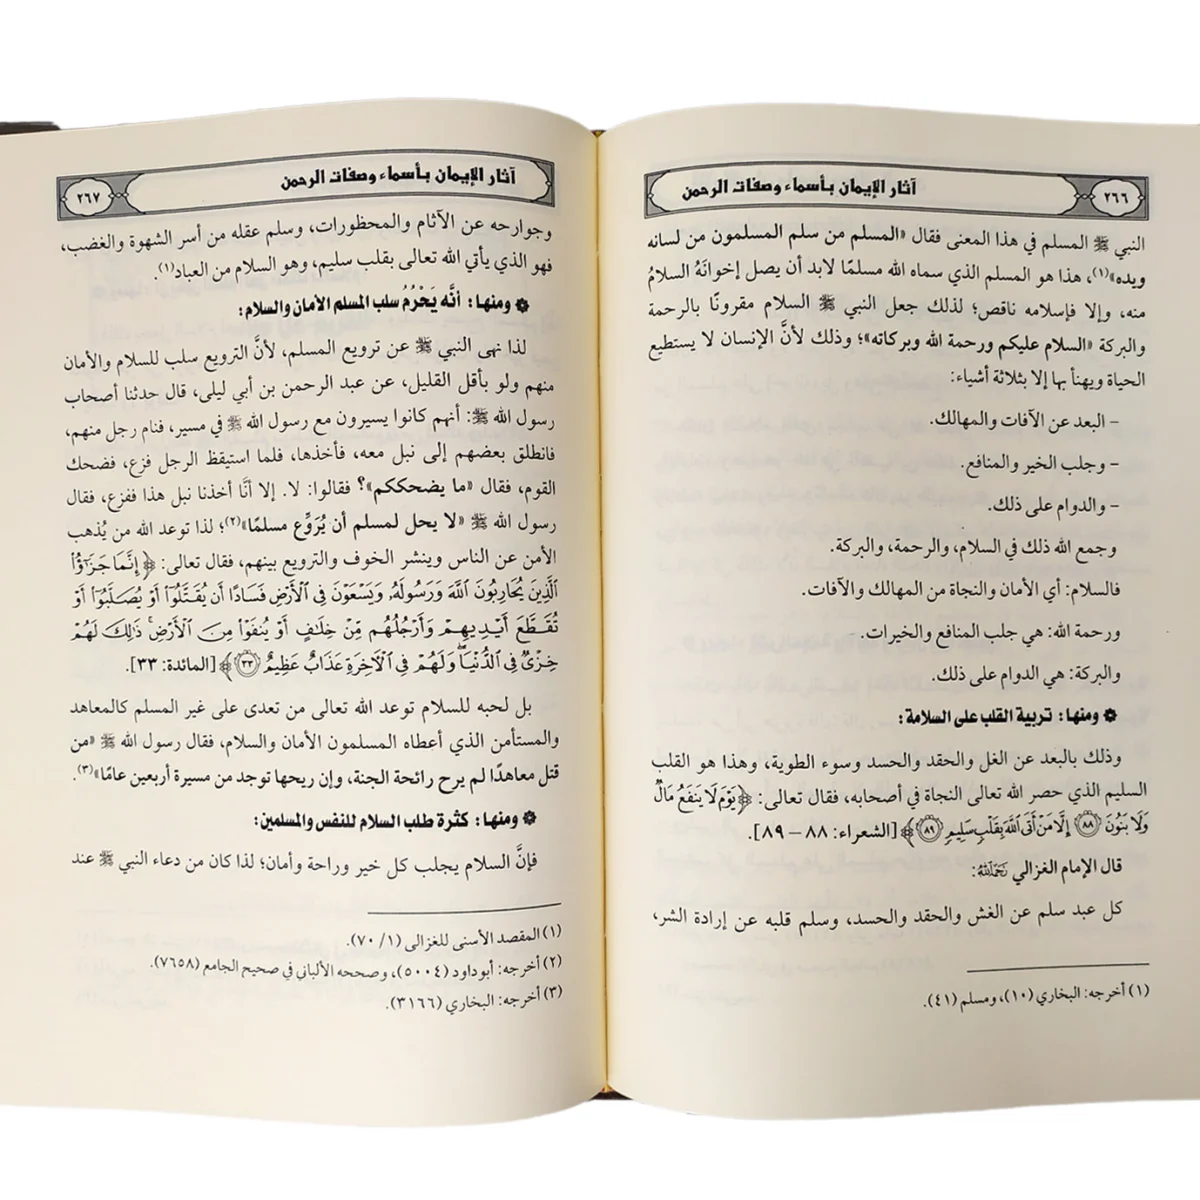 ٢٦٦
آثار الإيمان بأسماء وصفات الرحمن
النبي ﷺ المسلم في هذا المعنى فقال «المسلم من سلم المسلمون من لسانه
ويده»(١)، هذا هو المسلم الذي سماه الله مسلمًا لابد أن يصل إخوانَهُ السلامُ
منه، وإلا فإسلامه ناقص؛ لذلك جعل النبي ﷺ السلام مقرونًا بالرحمة
والبركة «السلام عليكم ورحمة الله وبركاته»؛ وذلك لأنَّ الإنسان لا يستطيع
الحياة ويهنأ بها إلا بثلاثة أشياء:
– البعد عن الآفات والمهالك.
– وجلب الخير والمنافع.
– والدوام على ذلك.
وجمع الله ذلك في السلام، والرحمة، والبركة.
فالسلام: أي الأمان والنجاة من المهالك والآفات.
ورحمة الله: هي جلب المنافع والخيرات.
والبركة: هي الدوام على ذلك.
۞ ومنها: تربية القلب على السلامة:
وذلك بالبعد عن الغل والحقد والحسد وسوء الطوية، وهذا هو القلب
السليم الذي حصر الله تعالى النجاة في أصحابه، فقال تعالى: ﴿يَوْمَ لَا يَنفَعُ مَالٌ
وَلَا بَنُونَ ٨٨ إِلَّا مَنْ أَتَى اللَّهَ بِقَلْبٍ سَلِيمٍ ٨٩﴾ [الشعراء: ٨٨ – ٨٩].
قال الإمام الغزالي رَحِمَهُ اللَّهُ:
كل عبد سلم عن الغش والحقد والحسد، وسلم قلبه عن إرادة الشر،
(١) أخرجه: البخاري (١٠)، ومسلم (٤١).
آثار الإيمان بأسماء وصفات الرحمن
٢٦٧
وجوارحه عن الآثام والمحظورات، وسلم عقله من أسر الشهوة والغضب،
فهو الذي يأتي الله تعالى بقلب سليم، وهو السلام من العباد(١).
۞ ومنها: أنَّه يَحْرُمُ سلب المسلم الأمان والسلام:
لذا نهى النبي ﷺ عن ترويع المسلم، لأنَّ الترويع سلب للسلام والأمان
منهم ولو بأقل القليل، عن عبد الرحمن بن أبي ليلى، قال حدثنا أصحاب
رسول الله ﷺ: أنهم كانوا يسيرون مع رسول الله ﷺ في مسير، فنام رجل منهم،
فانطلق بعضهم إلى نبل معه، فأخذها، فلما استيقظ الرجل فزع، فضحك
القوم، فقال «ما يضحككم»؟ فقالوا: لا. إلا أنَّا أخذنا نبل هذا ففزع، فقال
رسول الله ﷺ «لا يحل لمسلم أن يُرَوِّع مسلمًا»(٢)؛ لذا توعد الله من يُذهب
الأمن عن الناس وينشر الخوف والترويع بينهم، فقال تعالى: ﴿إِنَّمَا جَزَٰٓؤُاْ
ٱلَّذِينَ يُحَارِبُونَ ٱللَّهَ وَرَسُولَهُۥ وَيَسْعَوْنَ فِى ٱلْأَرْضِ فَسَادًا أَن يُقَتَّلُوٓاْ أَوْ يُصَلَّبُوٓاْ أَوْ
تُقَطَّعَ أَيْدِيهِمْ وَأَرْجُلُهُم مِّنْ خِلَٰفٍ أَوْ يُنفَوْاْ مِنَ ٱلْأَرْضِ ۚ ذَٰلِكَ لَهُمْ
خِزْىٌ فِى ٱلدُّنْيَا ۖ وَلَهُمْ فِى ٱلْءَاخِرَةِ عَذَابٌ عَظِيمٌ ٣٣﴾ [المائدة: ٣٣].
بل لحبه للسلام توعد الله تعالى من تعدى على غير المسلم كالمعاهد
والمستأمن الذي أعطاه المسلمون الأمان والسلام، فقال رسول الله ﷺ «من
قتل معاهدًا لم يرح رائحة الجنة، وإن ريحها توجد من مسيرة أربعين عامًا»(٣).
۞ ومنها: كثرة طلب السلام للنفس والمسلمين:
فإنَّ السلام يجلب كل خير وراحة وأمان؛ لذا كان من دعاء النبي ﷺ عند
(١) المقصد الأسنى للغزالى (١/ ٧٠).
(٢) أخرجه: أبوداود (٥٠٠٤)، وصححه الألباني في صحيح الجامع (٧٦٥٨).
(٣) أخرجه: البخاري (٣١٦٦).